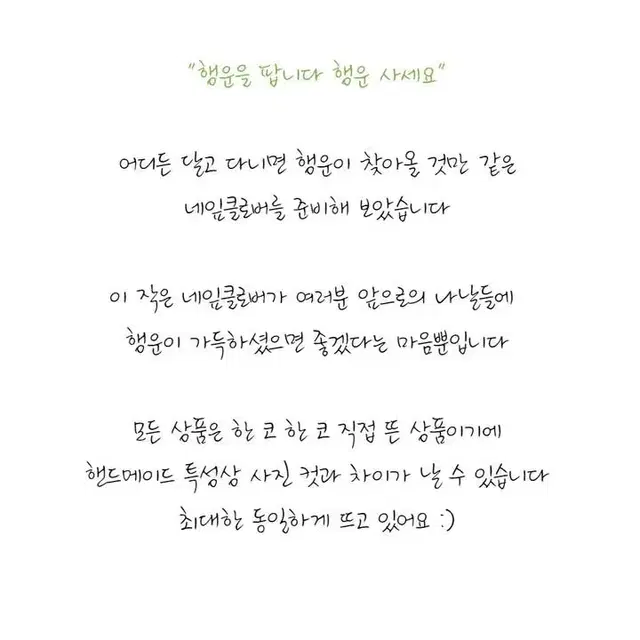 "행운을 팝니다 행운 사세요"
어디든 달고 다니면 행운이 찾아올 것만 같은
네잎클로버를 준비해 보았습니다
이 작은 네잎클로버가 여러분 앞으로의 나날들에
행운이 가득하셨으면 좋겠다는 마음뿐입니다
모든 상품은 한 코 한 코 직접 뜬 상품이기에
핸드메이드 특성상 사진 컷과 차이가 날 수 있습니다
최대한 동일하게 뜨고 있어요 :)